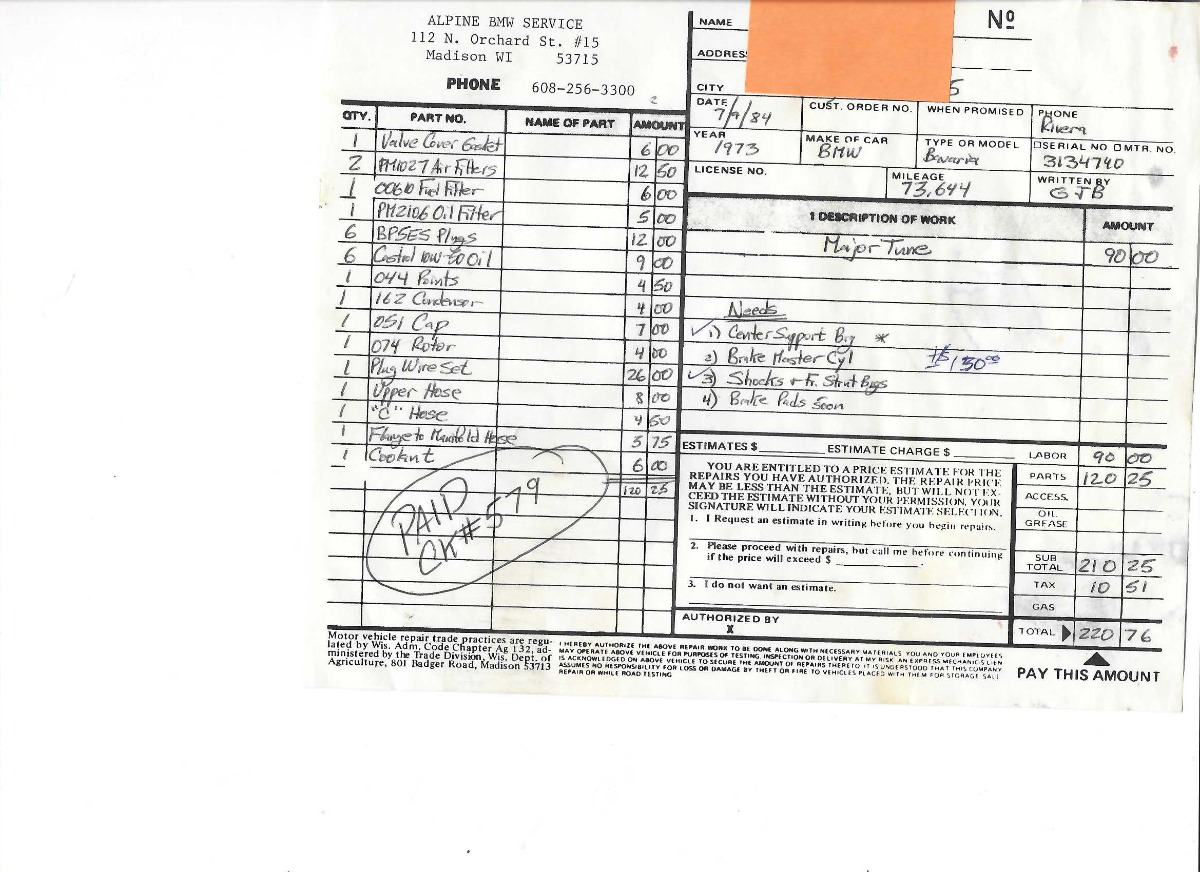 ALPINE BMW SERVICE
112 N. Orchard St. #15
Madison WI 53715
PHONE 608-256-3300
NAME
Nº
ADDRES
CITY
5
DATE 7/9/84
CUST. ORDER NO.
WHEN PROMISED
PHONE
Rivera
YEAR 1973
MAKE OF CAR BMW
TYPE OR MODEL Bavaria
SERIAL NO MTR. NO. 3134740
LICENSE NO.
MILEAGE 73,644
WRITTEN BY GJB
QTY. PART NO. NAME OF PART AMOUNT
1 Valve Cover Gasket 6 00
2 PM1027 Air Filters 12 50
1 00610 Fuel Filter 6 00
1 PM2106 Oil Filter 5 00
6 BP5ES Plugs 12 00
6 Castrol 10W-50 Oil 9 00
1 044 Points 4 50
1 162 Condensor 4 00
1 051 Cap 7 00
1 074 Rotor 4 00
1 Plug Wire Set 26 00
1 Upper Hose 8 00
1 "C" Hose 4 50
1 Flange to Manifold Hose 3 75
1 Coolant 6 00
120 25
PAID
CK# 579
DESCRIPTION OF WORK AMOUNT
Major Tune 90 00
Needs
✓ 1) Center Support Brg *
2) Brake Master Cyl $130.00
✓ 3) Shocks + Fr. Strut Brgs
4) Brake Pads Soon
ESTIMATES $ ESTIMATE CHARGE $
YOU ARE ENTITLED TO A PRICE ESTIMATE FOR THE
REPAIRS YOU HAVE AUTHORIZED. THE REPAIR PRICE
MAY BE LESS THAN THE ESTIMATE, BUT WILL NOT EX-
CEED THE ESTIMATE WITHOUT YOUR PERMISSION. YOUR
SIGNATURE WILL INDICATE YOUR ESTIMATE SELECTION.
1. I Request an estimate in writing before you begin repairs.
2. Please proceed with repairs, but call me before continuing
if the price will exceed $
3. I do not want an estimate.
AUTHORIZED BY
X
LABOR 90 00
PARTS 120 25
ACCESS.
OIL
GREASE
SUB
TOTAL 210 25
TAX 10 51
GAS
TOTAL 220 76
PAY THIS AMOUNT
Motor vehicle repair trade practices are regu-
lated by Wis. Adm. Code Chapter Ag 132, ad-
ministered by the Trade Division, Wis. Dept. of
Agriculture, 801 Badger Road, Madison 53713
I HEREBY AUTHORIZE THE ABOVE REPAIR WORK TO BE DONE ALONG WITH NECESSARY MATERIALS. YOU AND YOUR EMPLOYEES
MAY OPERATE ABOVE VEHICLE FOR PURPOSES OF TESTING, INSPECTION OR DELIVERY AT MY RISK. AN EXPRESS MECHANIC'S LIEN
IS ACKNOWLEDGED ON ABOVE VEHICLE TO SECURE THE AMOUNT OF REPAIRS THERETO. IT IS UNDERSTOOD THAT THIS COMPANY
ASSUMES NO RESPONSIBILITY FOR LOSS OR DAMAGE BY THEFT OR FIRE TO VEHICLES PLACED WITH THEM FOR STORAGE, SALE,
REPAIR OR WHILE ROAD TESTING